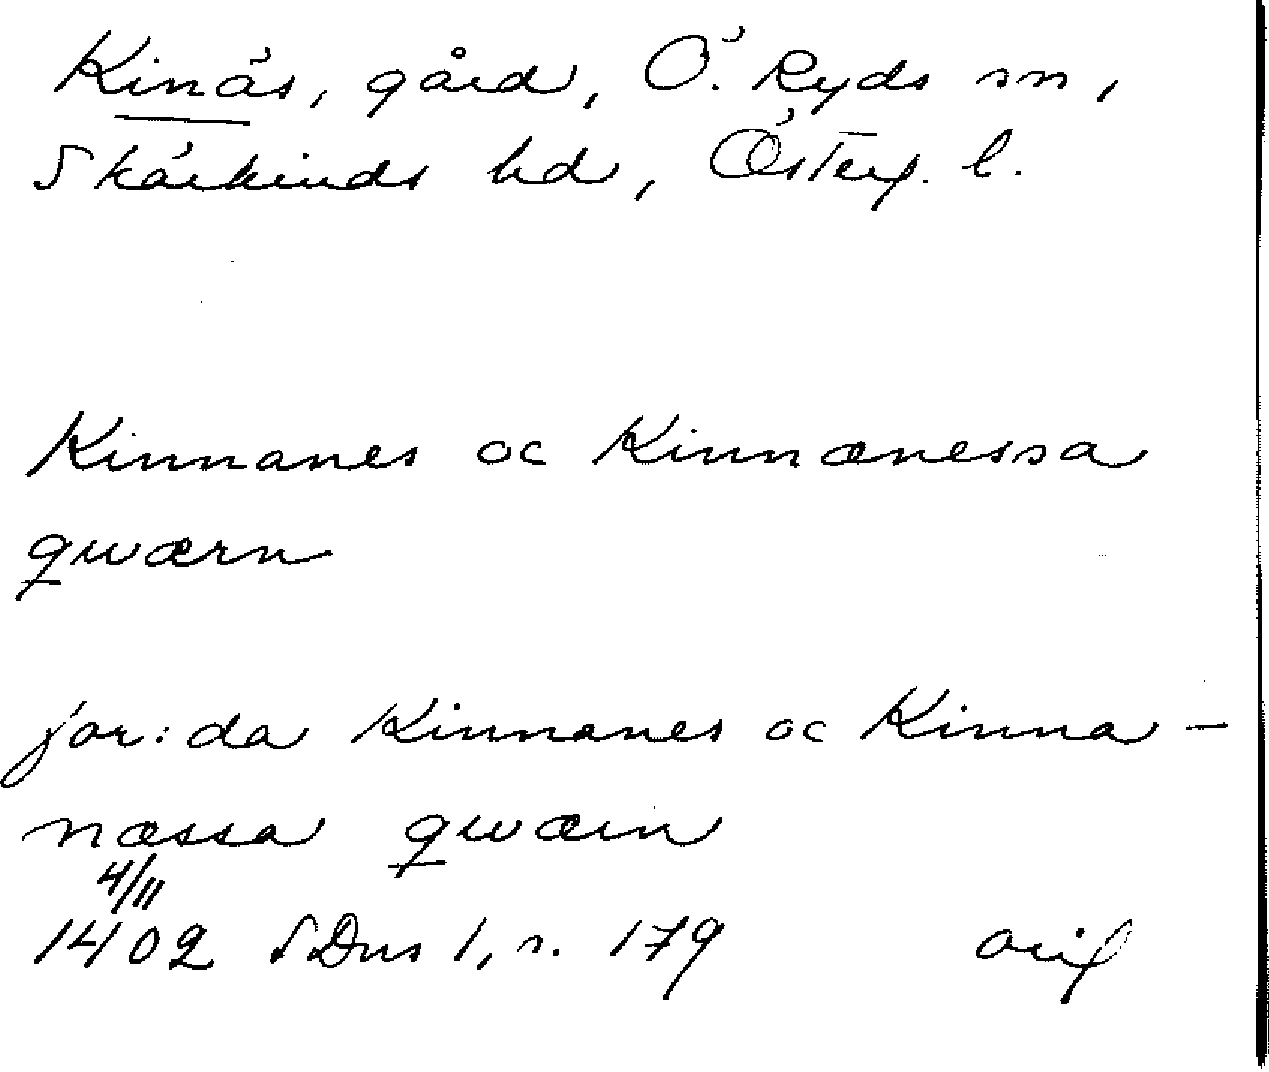 Kinäs, gård, Ö. Ryds sn,
Skärkinds hd, Österg. l.
Kinnanes oc Kinnænessa
qwærn
jor: da Kinnanes oc Kinna-
næssa qwærn
4/11
1402 SDns 1, s. 179 orig